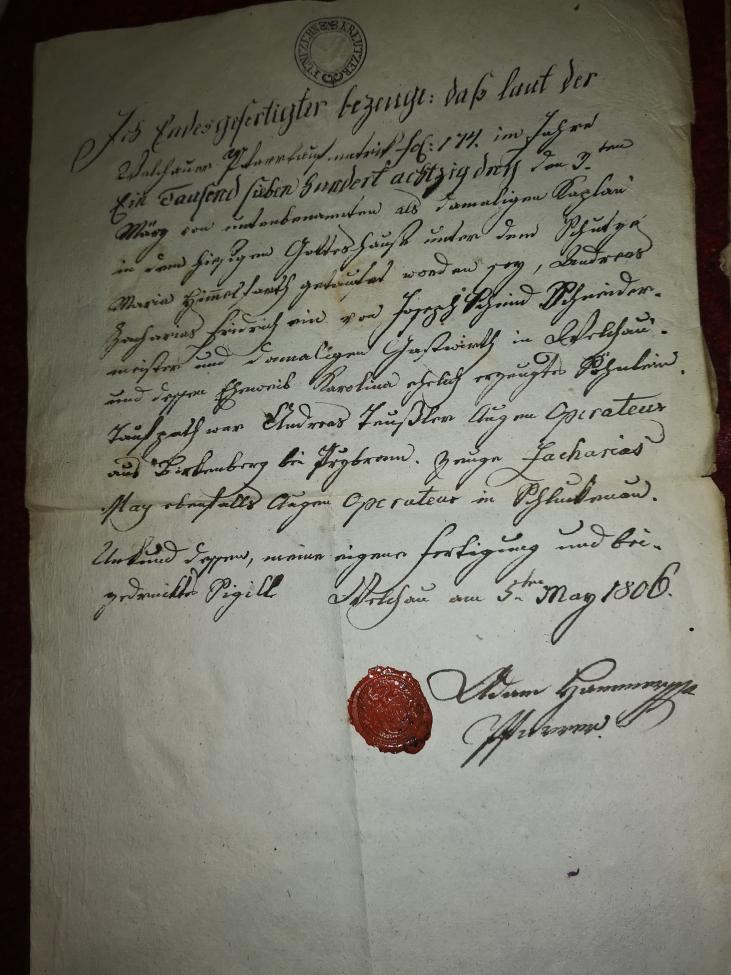 FÜNFZEHN KREUTZER
Ich Endesgefertigter bezeuge: daß laut der
Welchauer Pfarrtaufmatrik fol: 174. im Jahre
Ein Tausend sieben hundert achtzig drey den 3.ten
März von untenbenannten als damaligen Kaplan
in dem hiesigen Gotteshauß unter dem Schutze
Maria Himelfarth getaufet worden sey, Andreas
Zacharias Fridrich ein von Joseph Schmid Schneider-
meister und damaligen Gastwirth in Welchau.
und dessen Eheweib Karolina ehelich erzeugtes Söhnlein.
Taufpath war Andreas Teußler Augen Operateur
aus Birkenberg bei Przbram. Zeuge Zacharias
May ebenfalls Augen Operateur in Schluckenau.
Urkund dessen, meine eigene Fertigung und bei-
gedrucktes Sigill Welchau am 5ten May 1806.
Adam
Pfarrer.